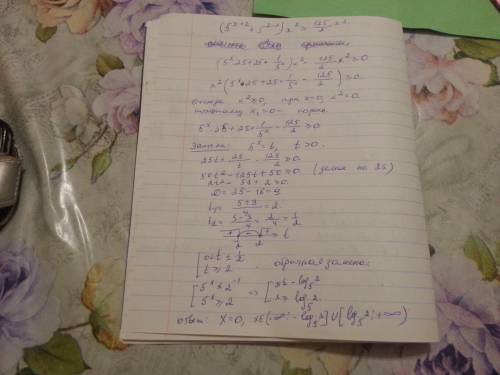 (5^{x+2} + 5^{2-x}) x² ≥ 125/2 x²
(5^x·25+25·1/5^x) x² - 125/2 x² ≥ 0
x² (5^x·25+25·1/5^x - 125/2) ≥ 0.
x² ≥ 0, при x=0, x²=0.
поэтому x₁=0 - корень.
5^x·25+25·1/5^x - 125/2 ≥ 0
Замена: 5^x = t, t>0.
25t + 25/t - 125/2 ≥ 0.
50t² - 125t + 50 ≥ 0. (делим на 25)
2t² - 5t + 2 ≥ 0.
D = 25 - 16 = 9
t₁ = 5+3/4 = 2
t₂ = 5-3/4 = 2/4 = 1/2
+ - + t
1/2 2
[ 0<t ≤ 1/2
t ≥ 2. обратная замена:
[ 5^x ≤ 2^{-1} => [ x ≤ - log₅2
5^x ≥ 2 x ≥ log₅2.
ответ: x=0, x∈(-∞; -log₅2] ∪ [log₅2; +∞)